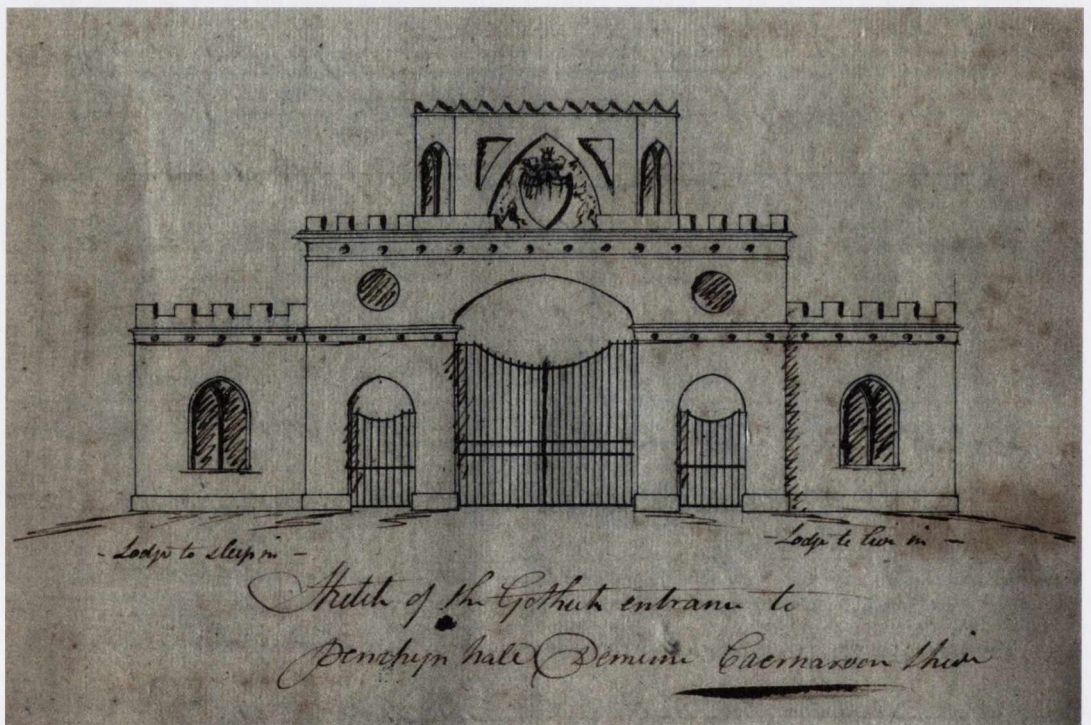 - Lodge to sleep in -
- Lodge to live in -
Sketch of the Gothick entrance to
Penrhyn hall Demesne Caernarvon Shire